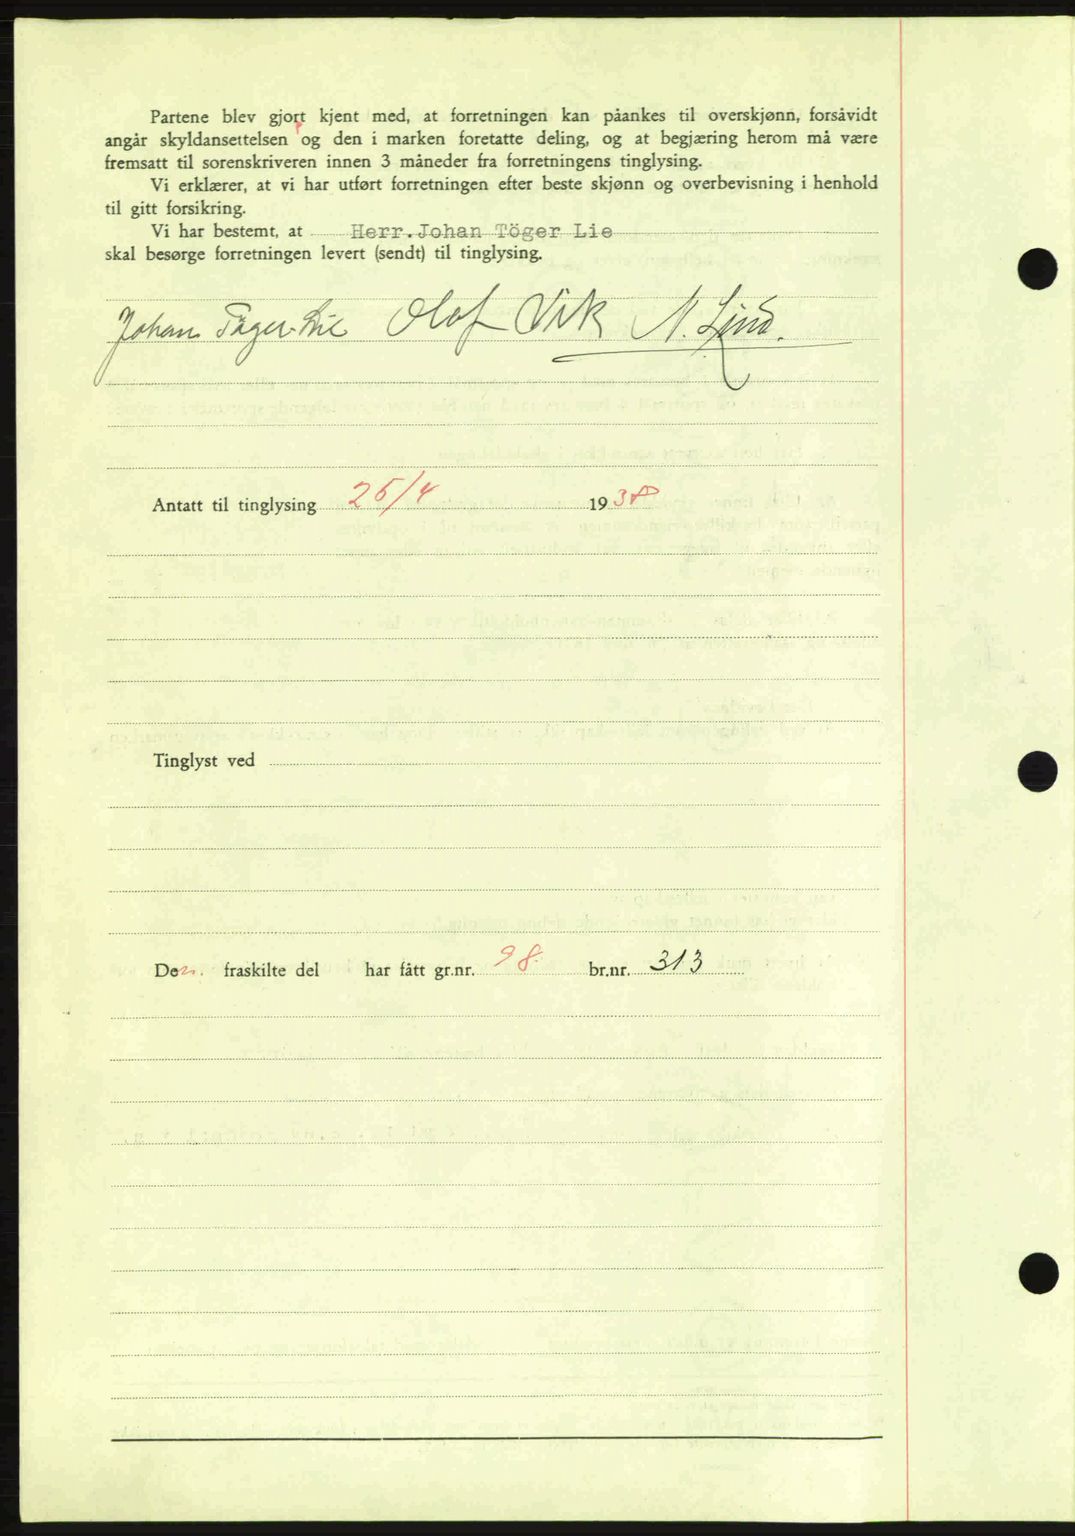 Partene blev gjort kjent med, at forretningen kan påankes til overskjønn, forsåvidt
angår skyldansettelsen og den i marken foretatte deling, og at begjæring herom må være
fremsatt til sorenskriveren innen 3 måneder fra forretningens tinglysing.
Vi erklærer, at vi har utført forretningen efter beste skjønn og overbevisning i henhold
til gitt forsikring.
Vi har bestemt, at Herr.Johan Töger Lie
skal besørge forretningen levert (sendt) til tinglysing.
Johan Töger Lie Olaf Vik N. Lund.
Antatt til tinglysing 25/4 1938
Tinglyst ved
Den. fraskilte del har fått gr.nr. 98. br.nr. 313